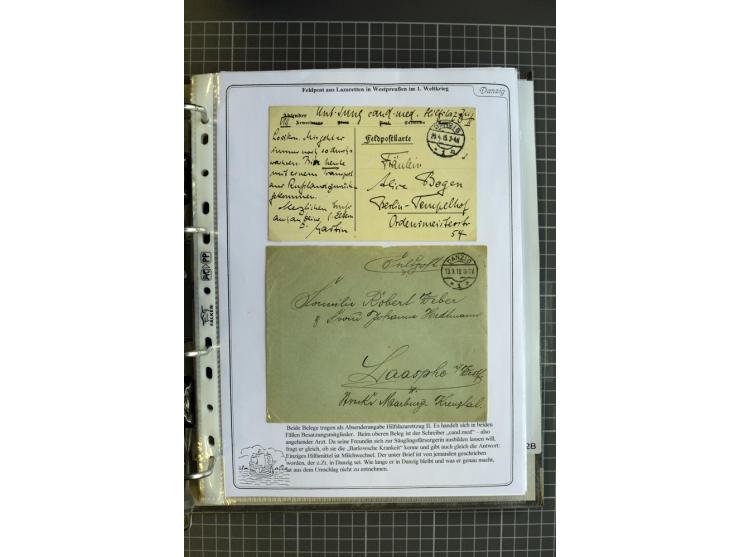 Feldpost aus Lazaretten in Westpreußen im 1. Weltkrieg
Danzig
Absender Unt. Jung cand. med. Hilfslaz. Zug II
Feldpostkarte
DANZIG
immer noch so
warten. Bin heute
mit einem Transport
aus Rußland zurück
gekommen.
Herzlichen Gruß
Martin
Fräulein
Alice Bogen
Berlin-Tempelhof
Ordensmeisterstr
54
Feldpost
DANZIG
Familie Robert Weber
Laasphe
PP
FALKEN
Beide Belege tragen als Absenderangabe Hilfslazarettzug II. Es handelt sich in beiden
Fällen Besatzungsmitglieder. Beim oberen Beleg ist der Schreiber „cand.med“ – also
angehender Arzt. Da seine Freundin sich zur Säuglingsfürsorgerin ausbilden lassen will,
fragt er gleich, ob sie die „Barlowsche Krankeit“ kenne und gibt auch gleich die Antwort:
Einziges Hilfsmittel ist Milchwechsel. Der unter Brief ist von jemanden geschrieben
worden, der z.Zt. in Danzig sei. Wie lange er in Danzig bleibt und was er genau macht,
ist aus dem Umschlag nicht zu entnehmen.
2B